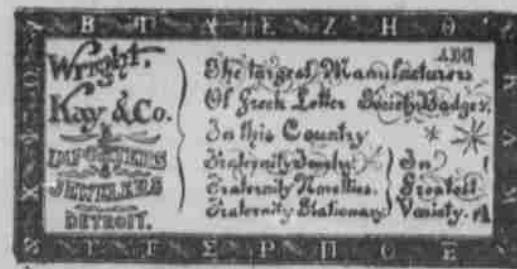 Β Γ Δ Ε Ζ Η Θ
Wright,
Kay & Co.
IMPORTERS
&
JEWELERS
DETROIT.
The largest Manufacturers
Of Greek Letter Society Badges,
In this Country
Fraternity Jewelry
Fraternity Novelties.
Fraternity Stationary
In
Greatest
Variety.
Σ Ρ Π Ο Ξ